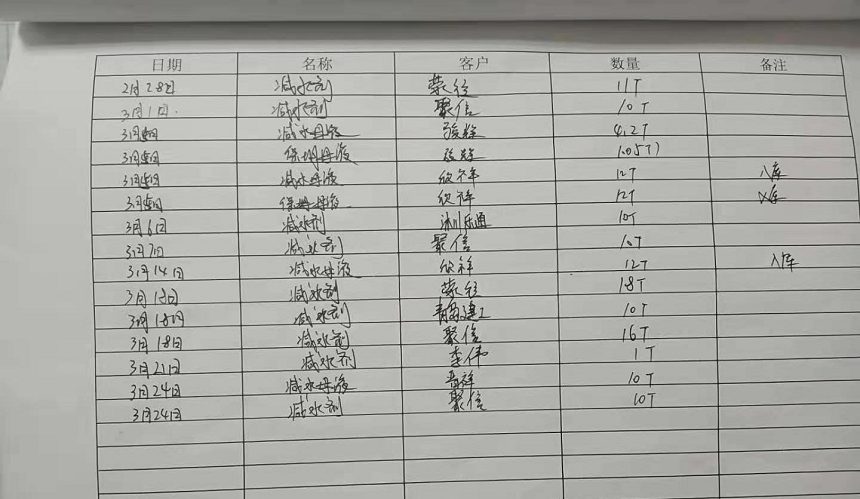 日期 名称 客户 数量 备注
2月28日 减水剂 荣经 11T
3月1日 减水剂 聚信 10T
3月5日 减水母液 4.2T
3月5日 保坍母液 1.05T)
3月5日 减水母液 欣祥 12T 入库
3月5日 保坍母液 欣祥 12T 入库
3月6日 减水剂 乐通 10T
3月7日 减水剂 聚信 10T
3月14日 减水母液 欣祥 12T 入库
3月18日 减水剂 荣经 18T
3月18日 减水剂 青岛建工 10T
3月18日 减水剂 聚信 16T
3月21日 减水剂 李伟 1T
3月24日 减水母液 10T
3月24日 减水剂 聚信 10T